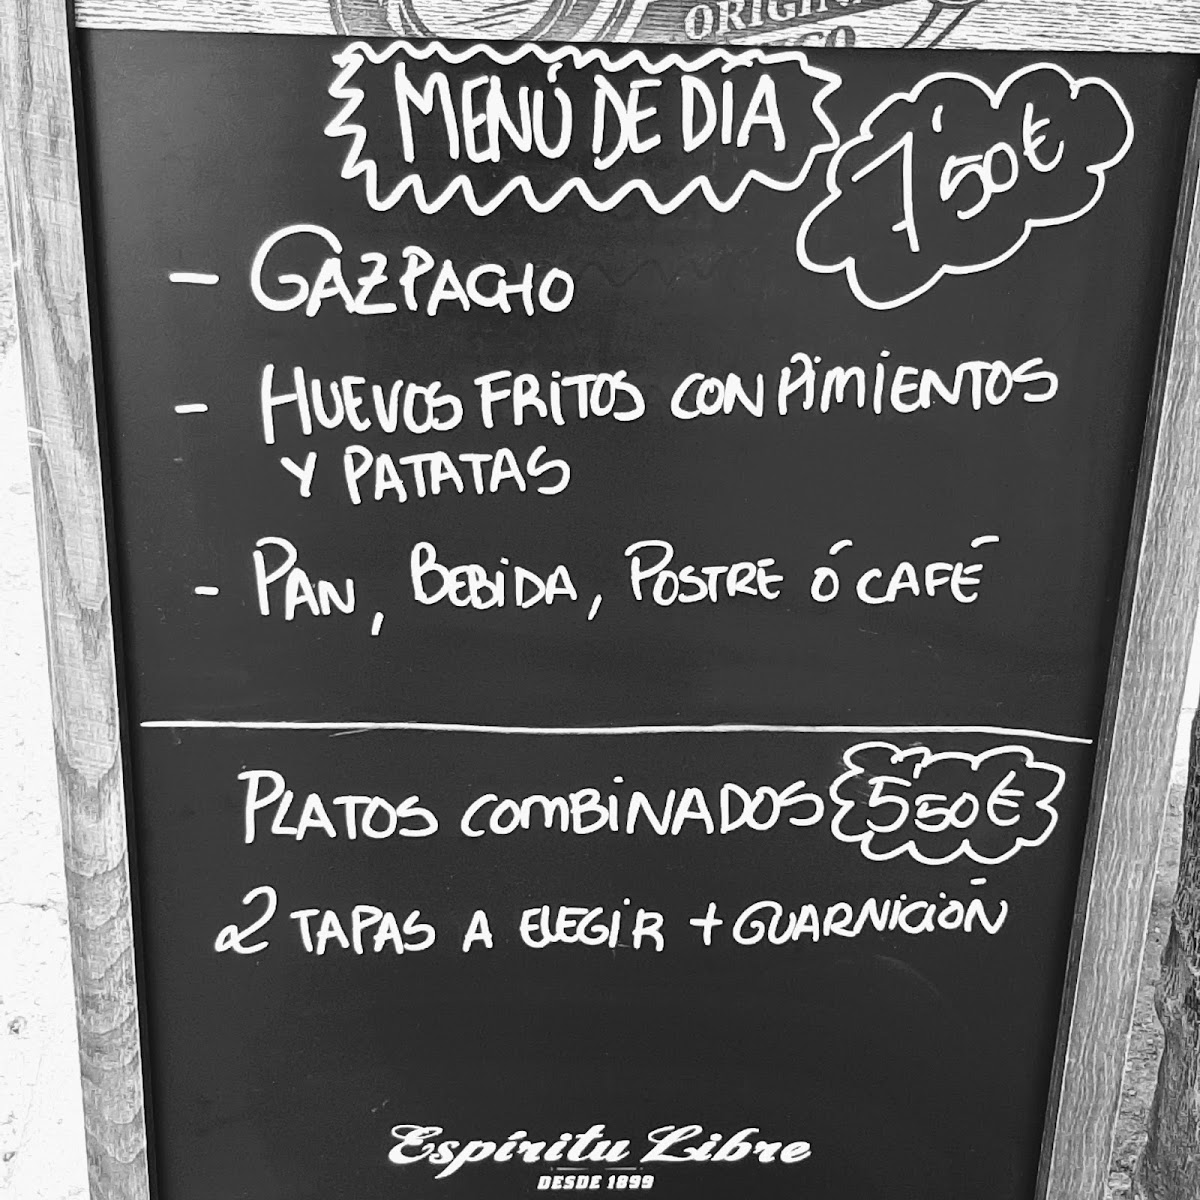 MENÚ DE DÍA 7'50€
- GAZPACHO
- HUEVOS FRITOS CON PIMIENTOS
Y PATATAS
- PAN, BEBIDA, POSTRE Ó CAFÉ
PLATOS COMBINADOS 5'50€
2 TAPAS A ELEGIR + GUARNICIÓN
Espíritu Libre
DESDE 1899